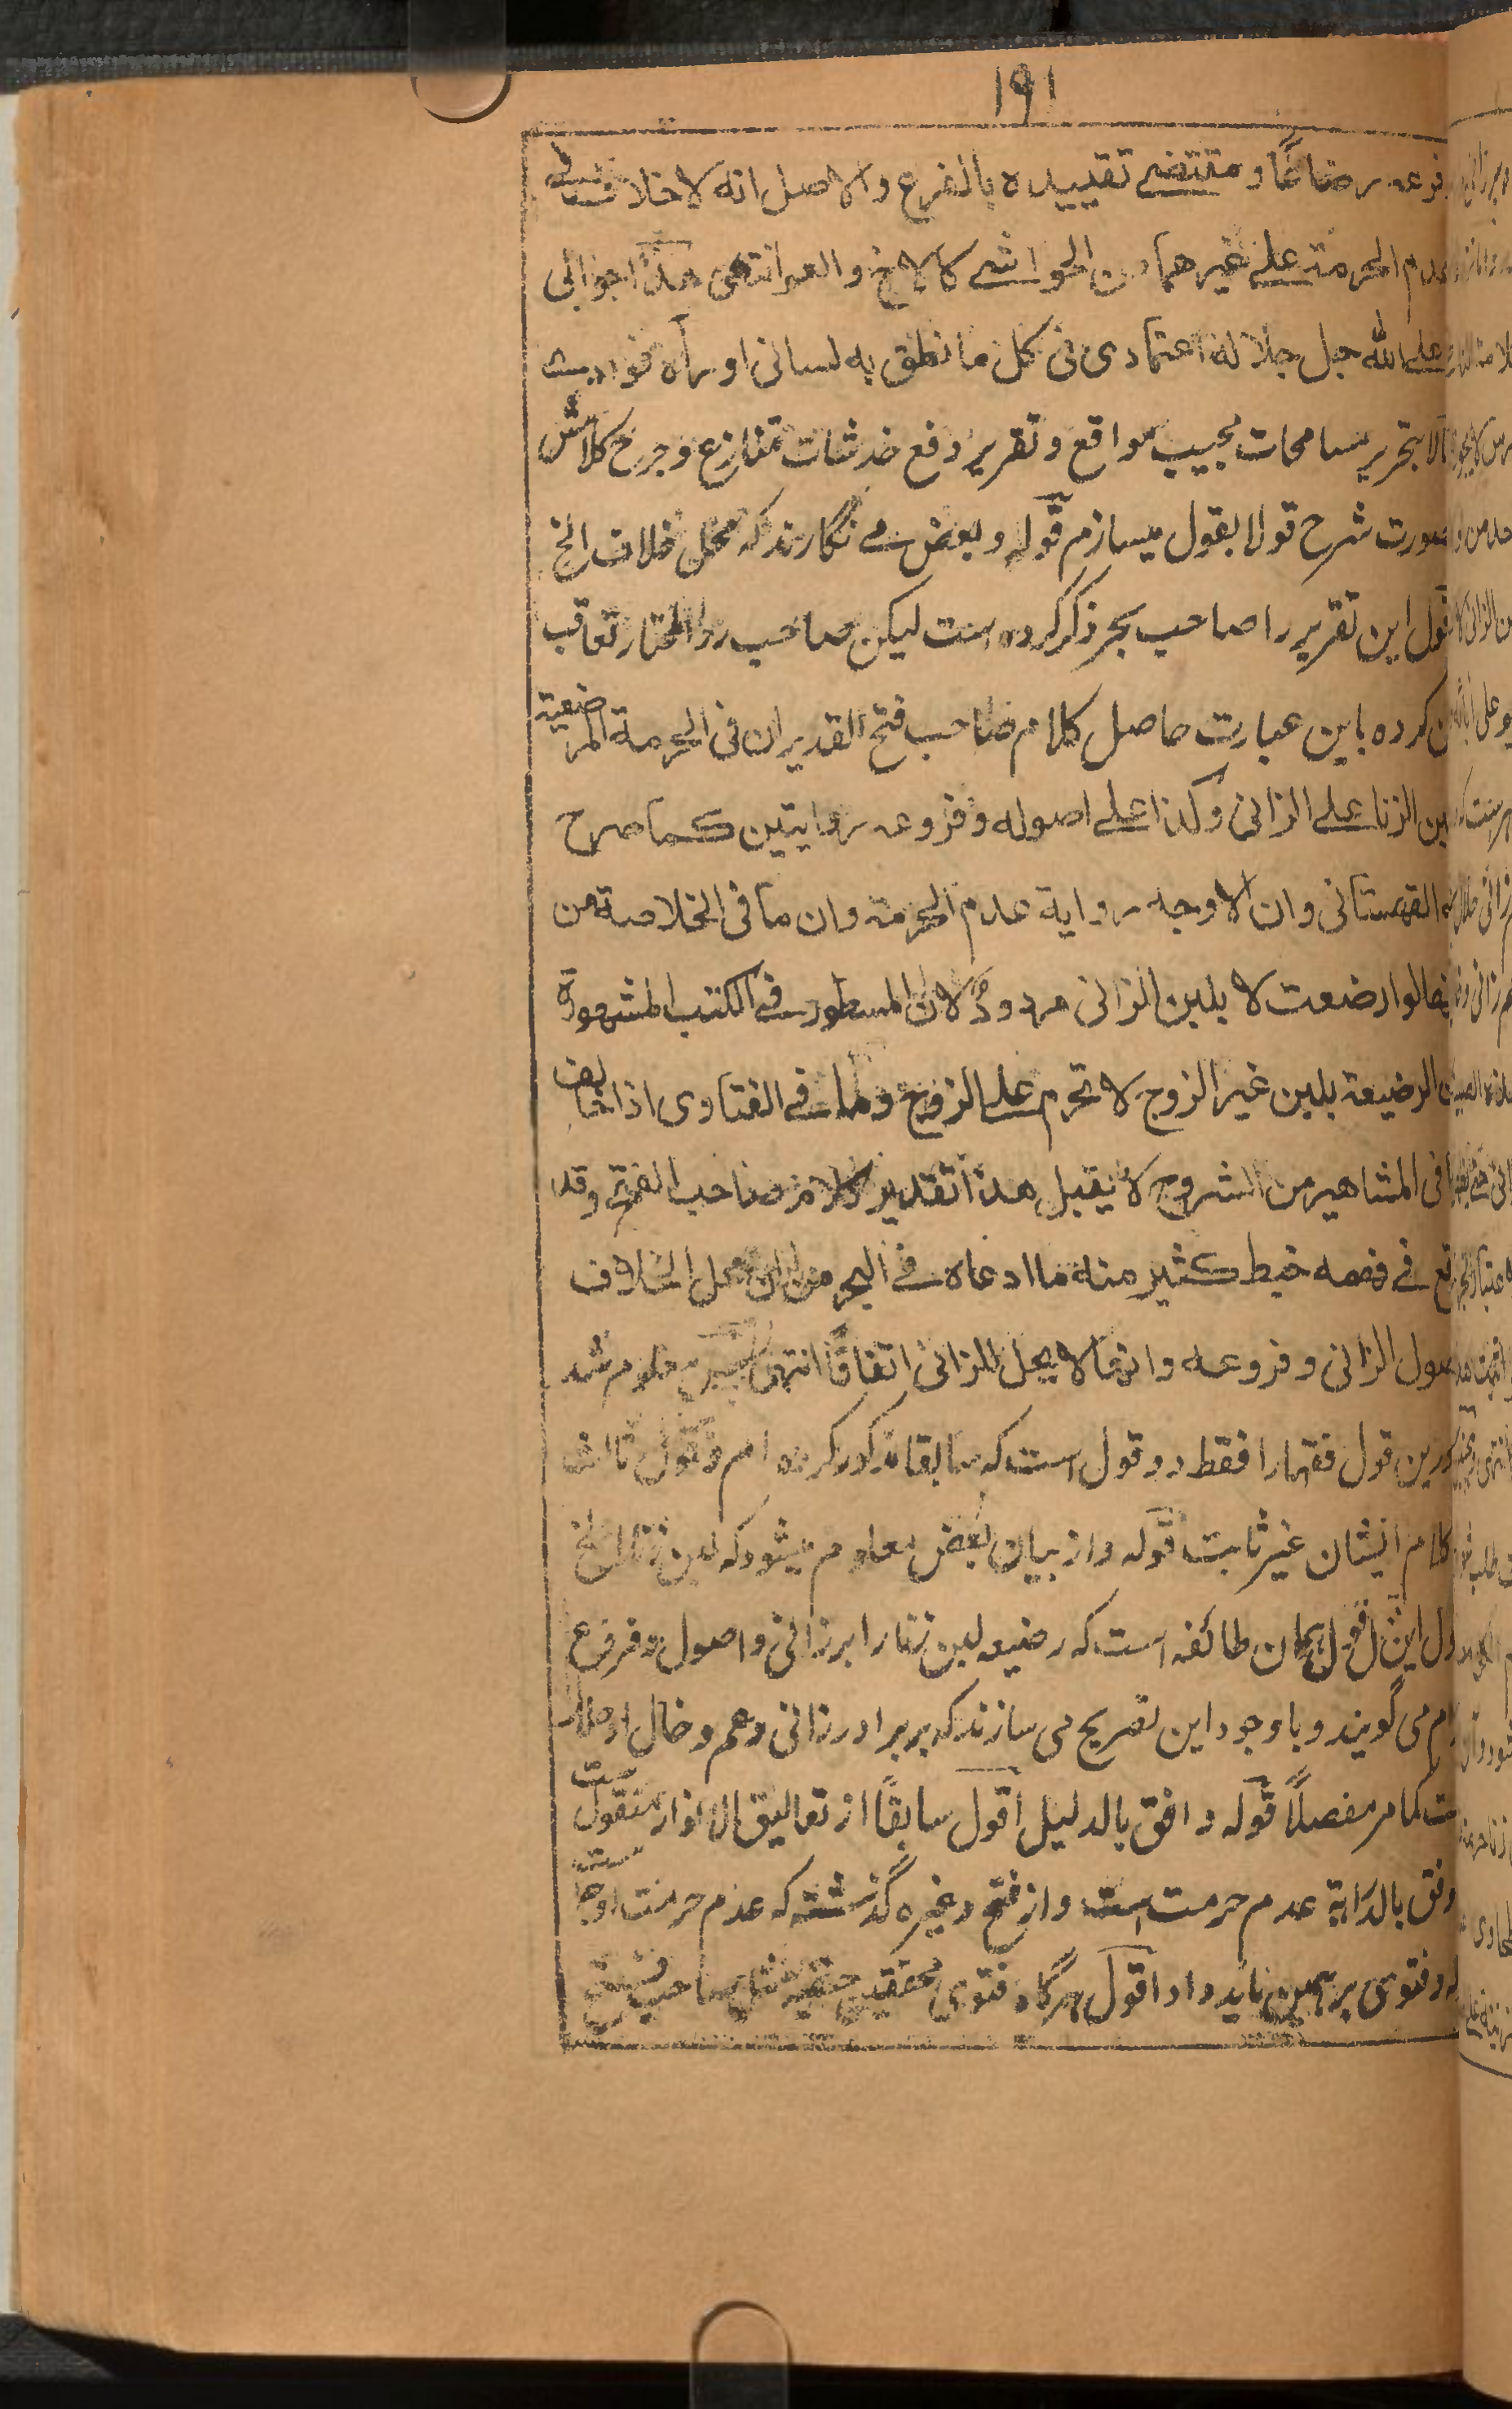 ۱۹۱
فرعه رضاعًا و مقتضے تقییده بالفرع والاصل انه لا خلاف فی
عدم الحرمة علے غیرهما من الحواشے کالاخ والعم انتهی هذا جوابی
علے الله جل جلاله اعتمادی فی کل ما نطق به لسانی او رآه فوادیے
الا بتحریر مسامحات مجیب مواقع و تقریر دفع خدشات متنازع و جرح کلامش
صورت شرح قولا بقول میسازم قوله و بعض مے نگارند که محل خلاف الخ
اقول این تقریر را صاحب بحر ذکر کرده است لیکن صاحب رد المحتار تعاقب
کرده باین عبارت حاصل کلام صاحب فتح القدیر ان فی الحرمة المرضعیة
بلبن الزنا علے الزانی و کذا علے اصوله و فروعه روایتین کما صرح
به القهستانی وان الاوجه روایة عدم الحرمة وان ما فی الخلاصة من
انها لو ارضعت لا بلبن الزانی مردود لان المسطور فے الکتب المشهورة
ان الرضیعة بلبن غیر الزوج لا تحرم علے الزوج و ما فے الفتاوی اذا خالف
ما فی المشاهیر من الشروح لا یقبل هذا تقدیر کلام صاحب الفتح وقد
وقع فے فهمه خبط کثیر منه ما ادعاه فے البحر من ان محل الخلاف
اصول الزانی و فروعه وانها لا یحل للزانی اتفاقًا انتهی پس معلوم شد
که درین قول فقها را فقط دو قول است که سابقا مذکور کرده ام و قول ثالث
کلام ایشان غیر ثابت قوله و از بیان بعض معلوم میشود که لبن زنا الخ
اقول این قول همان طائفه است که رضیعه لبن زنا را بر زانی و اصول و فروع
حرام می گویند و با وجود این تصریح می سازند که بر برادر زانی و عم و خال او حلال
ست کما مر مفصلًا قوله وافق بالدلیل اقول سابقًا از تعالیق الانوار منقول ست
اوفق بالدرایة عدم حرمت است و از فتح و غیره گذشته که عدم حرمت اوجه ست
و فتوی بر همین باید داد اقول هرگاه فتوی محققین حنفیه مثل صاحب فتح